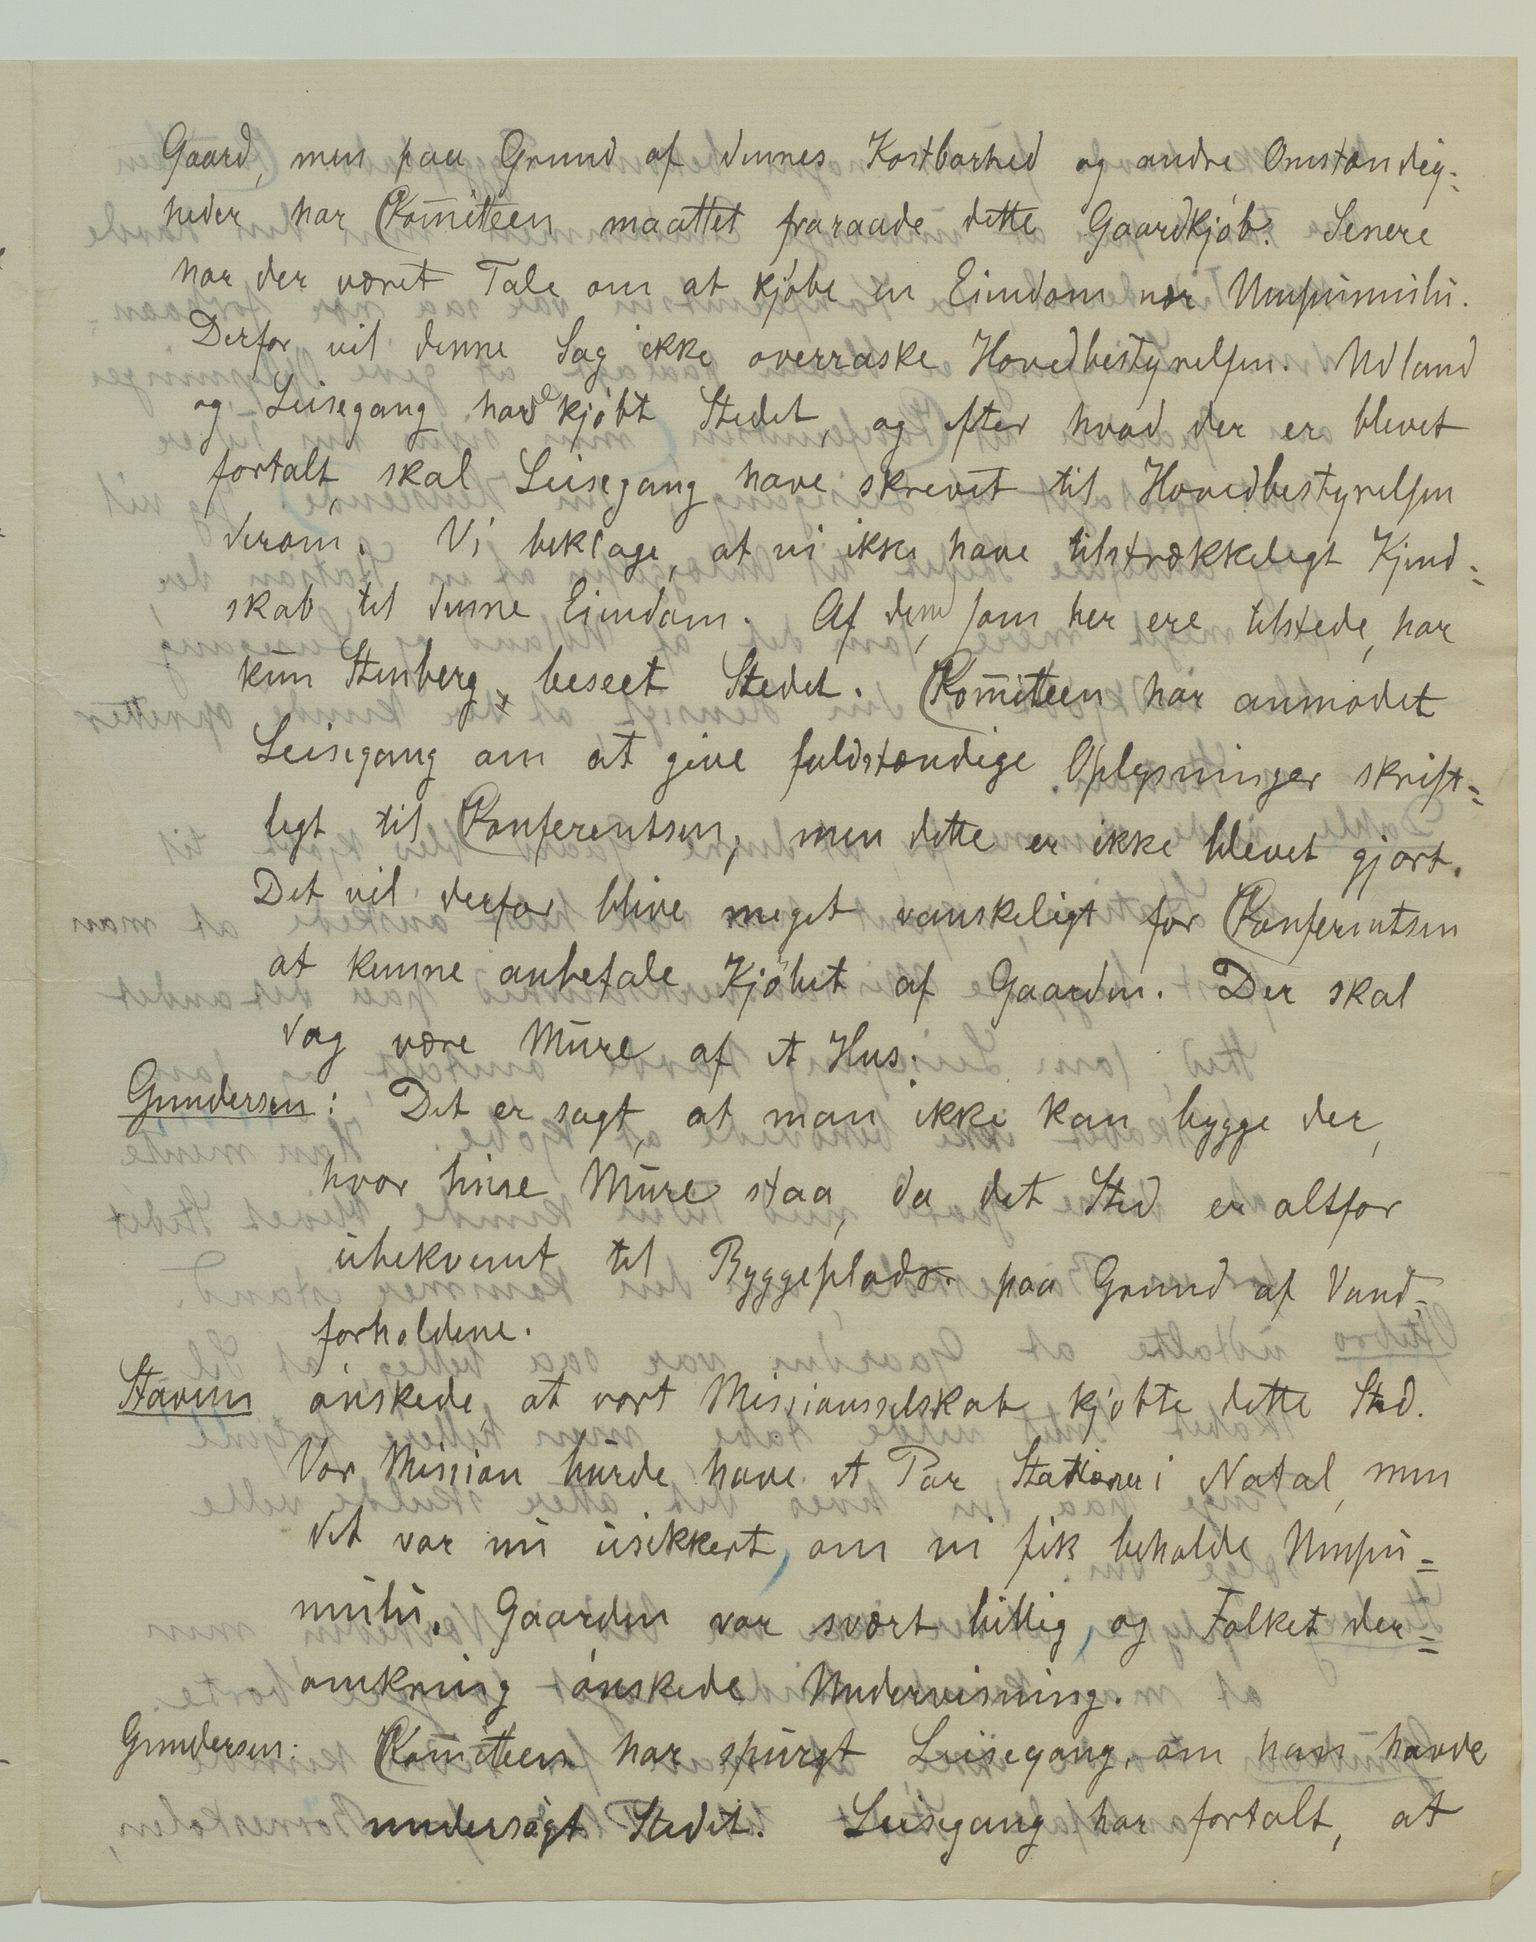 Gaard, men paa Grund af dennes Kostbarhed og andre Omstændig-
heder har Komiteen maattet fraraade dette Gaardkjøb. Senere
har der været Tale om at kjøbe en Eiendom nær Umpumulu.
Derfor vil denne Sag ikke overraske Hovedbestyrelsen. Udland
og Leisegang havde kjøbt Stedet, og efter hvad der er blevet
fortalt, skal Leisegang have skrevet til Hovedbestyrelsen
derom. Vi beklage, at vi ikke have tilstrækkeligt Kjend-
skab til denne Eiendom. Af dem, som her ere tilstede, har
kun Stenberg beseet Stedet. Komiteen har anmodet
Leisegang om at give fuldstændige Oplysninger skrift-
ligt til Konferentsen, men dette er ikke blevet gjort.
Det vil derfor blive meget vanskeligt for Konferentsen
at kunne anbefale Kjøbet af Gaarden. Der skal
dog være Mure af et Hus.
Gundersen: Det er sagt, at man ikke kan bygge der,
hvor hine Mure staa, da det Sted er altfor
ubekvemt til Byggeplads paa Grund af Vand-
forholdene.
Stavem ønskede, at vort Missionsselskab kjøbte dette Sted.
Vor Mission burde have et Par Stationer i Natal, men
det var nu usikkert, om vi fik beholde Umpu-
mulu. Gaarden var svært billig, og Folket der-
omkring ønskede Undervisning.
Gundersen: Komiteen har spurgt Leisegang, om han havde
undersøgt Stedet. Leisegang har fortalt, at